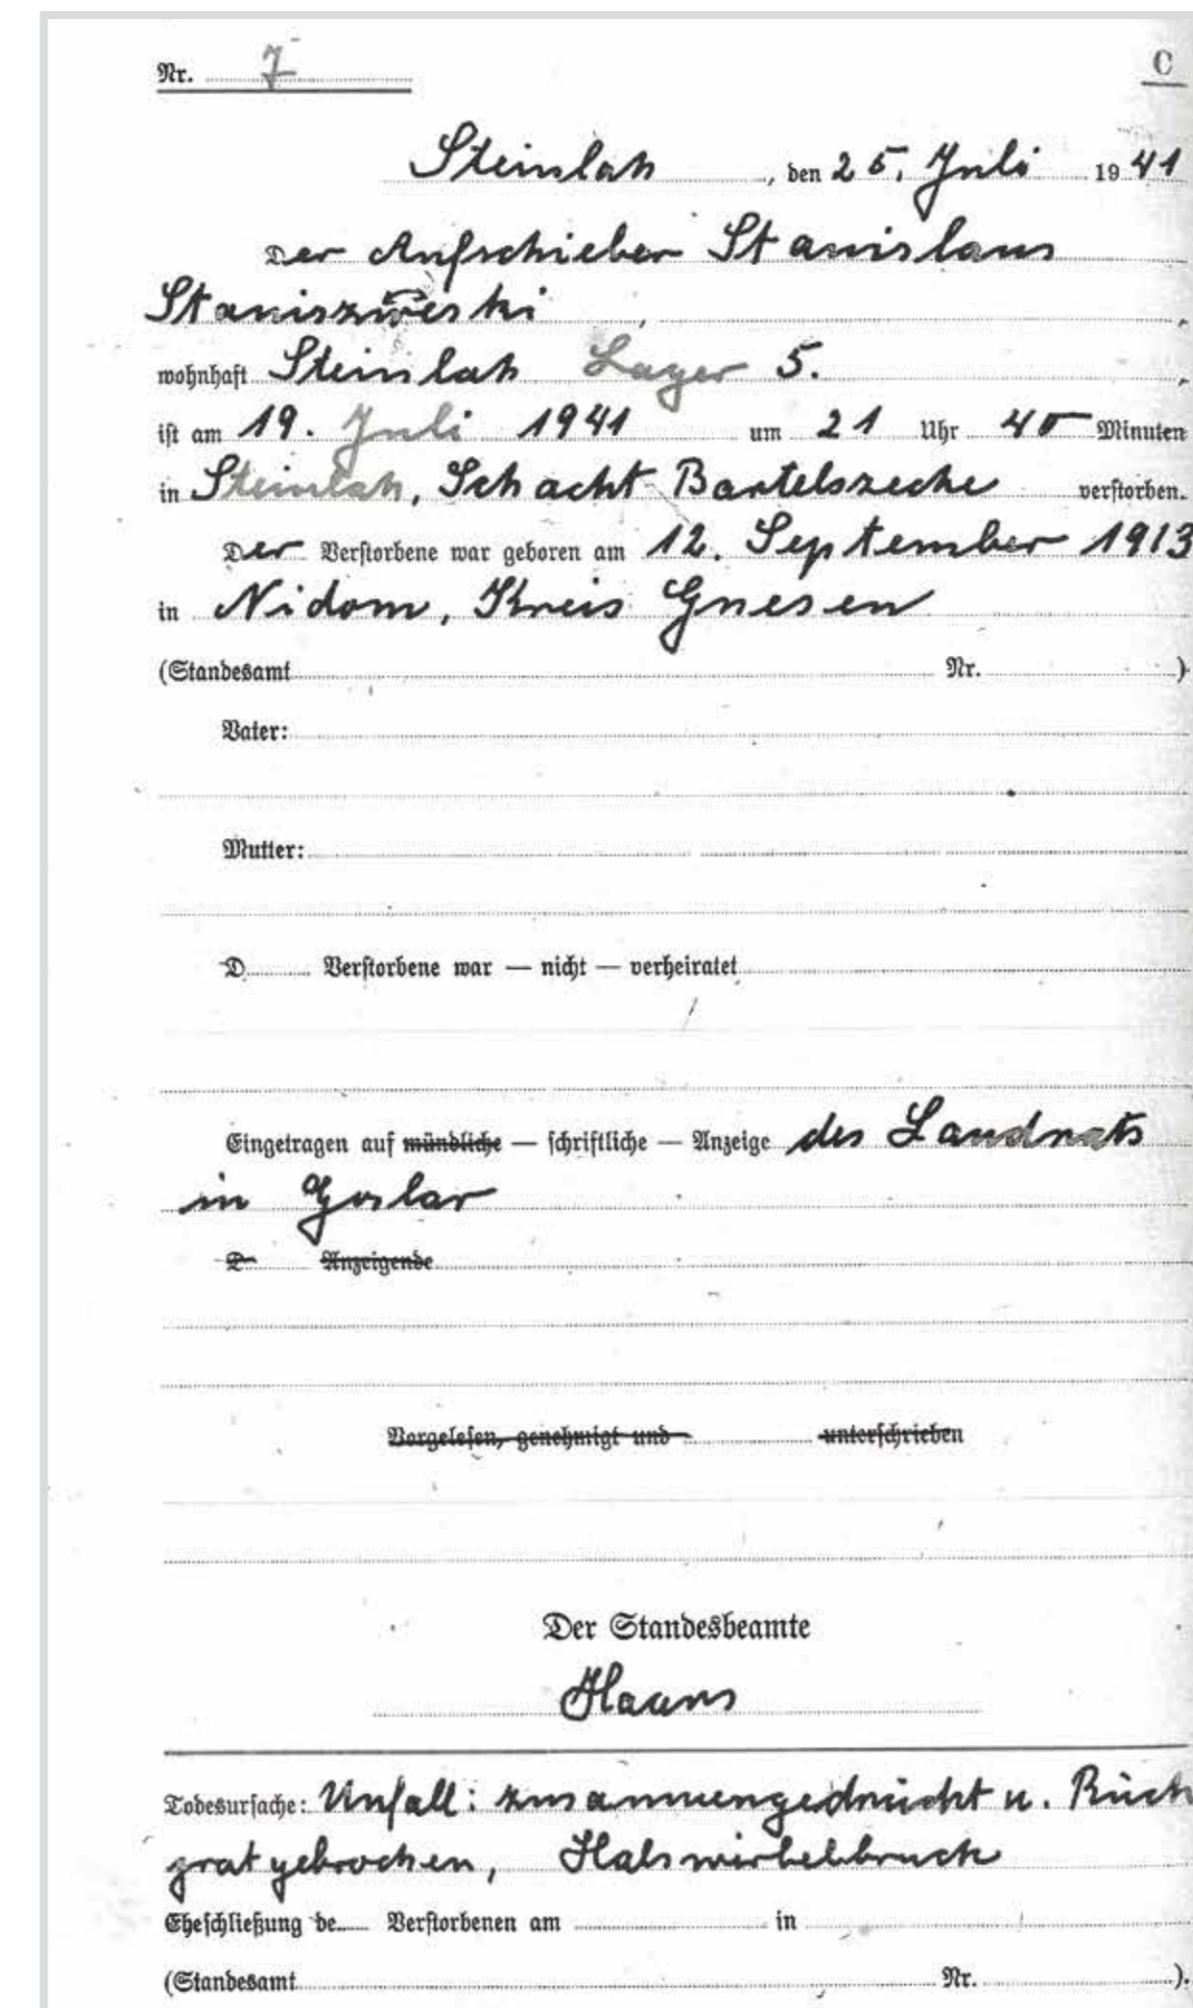 Nr. 7 C
Steinlah, den 25. Juli 1941
Der Aufschieber Stanislaus
Staniszweski,
wohnhaft Steinlah Lager 5.
ist am 19. Juli 1941 um 21 Uhr 40 Minuten
in Steinlah, Schacht Bartelszeche verstorben.
Der Verstorbene war geboren am 12. September 1913
in Nidom, Kreis Gnesen
(Standesamt Nr. )
Vater:
Mutter:
D Verstorbene war — nicht — verheiratet
Eingetragen auf mündliche — schriftliche — Anzeige des Landrats
in Goslar
D Anzeigende
Vorgelesen, genehmigt und unterschrieben
Der Standesbeamte
Todesursache: Unfall: zusammengedrückt u. Rück
grat gebrochen, Halswirbelbruch
Eheschließung de Verstorbenen am in
(Standesamt Nr. ).